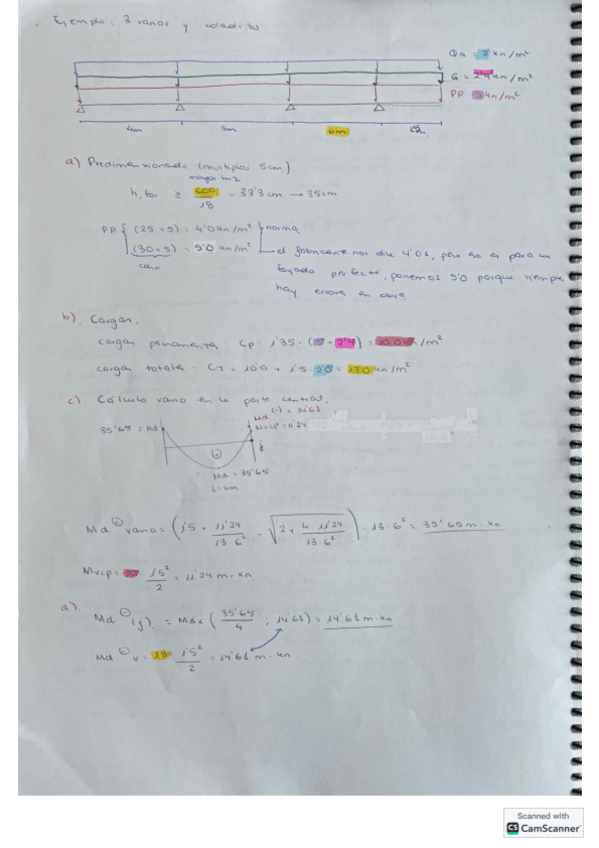 Ejemplo: 3 vanos y voladizo.
Qa = 2 kn/m²
G = 2'4 kn/m²
PP 5 kn/m²
4m 5m 6m 1'5
a) Predimensionado (multiplos 5cm)
mayor luz
h, for ≥ 600/18 = 33'3 cm → 35cm
PP { (25+5) = 4'0 kn/m² } norma
(30+5) = 5'0 kn/m² → el fabricante nos dice 4'01, pero eso es para un
caso
forjado perfecto, ponemos 5'0 porque siempre
hay errores en obra.
b). Cargas.
cargas permanentes: Cp = 1'35 · (5+2'4) = 10'0 kn/m²
cargas totales: CT = 10'0 + 1'5 · 2'0 = 13'0 kn/m²
c). Cálculo vano en la parte central.
Md (-) = 14'61
35'65 = Md
Mvcp = 11'24
j
Md = 35'65
L = 6m
Md ⊕ vano = (1'5 + 11'24/13·6² - √(2 + 4·11'24/13·6²)) · 13·6² = 35'65 m·kn
Mvcp = 1'5²/2 = 11'24 m·kn.
d).
Md ⊖ (j) = Máx (35'65/4 ; 14'61) = 14'61 m·kn
Md ⊖ v = 13 · 1'5²/2 = 14'61 m·kn
Scanned with
CS CamScanner